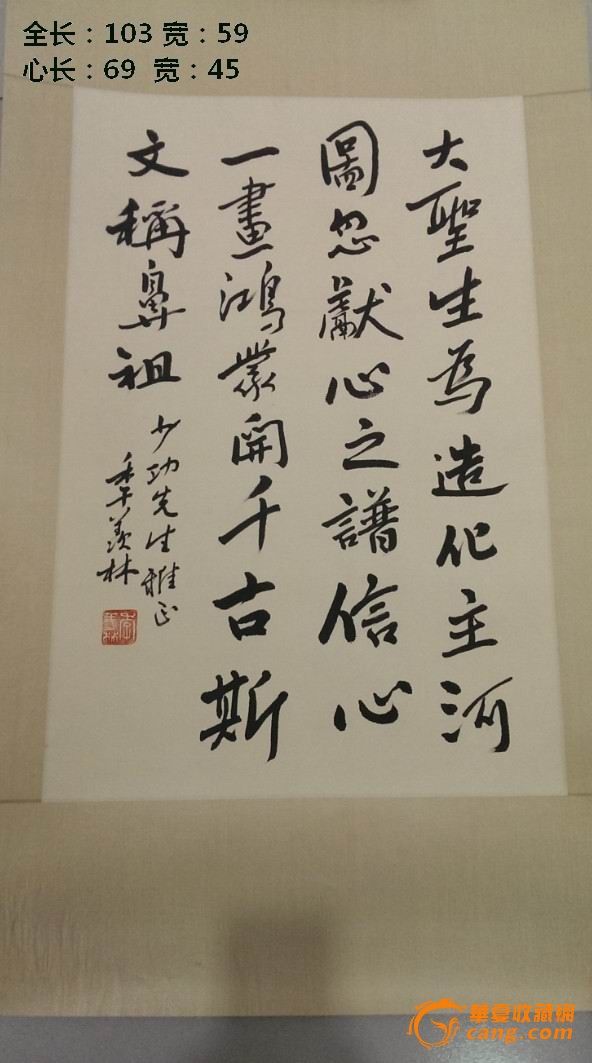 全长：103 宽：59
心长：69 宽：45
大聖生為造化主河
圖忽獻心之譜信心
一畫鴻蒙開千古斯
文稱鼻祖
少功先生雅正
季羨林
華夏收藏網
cang.com